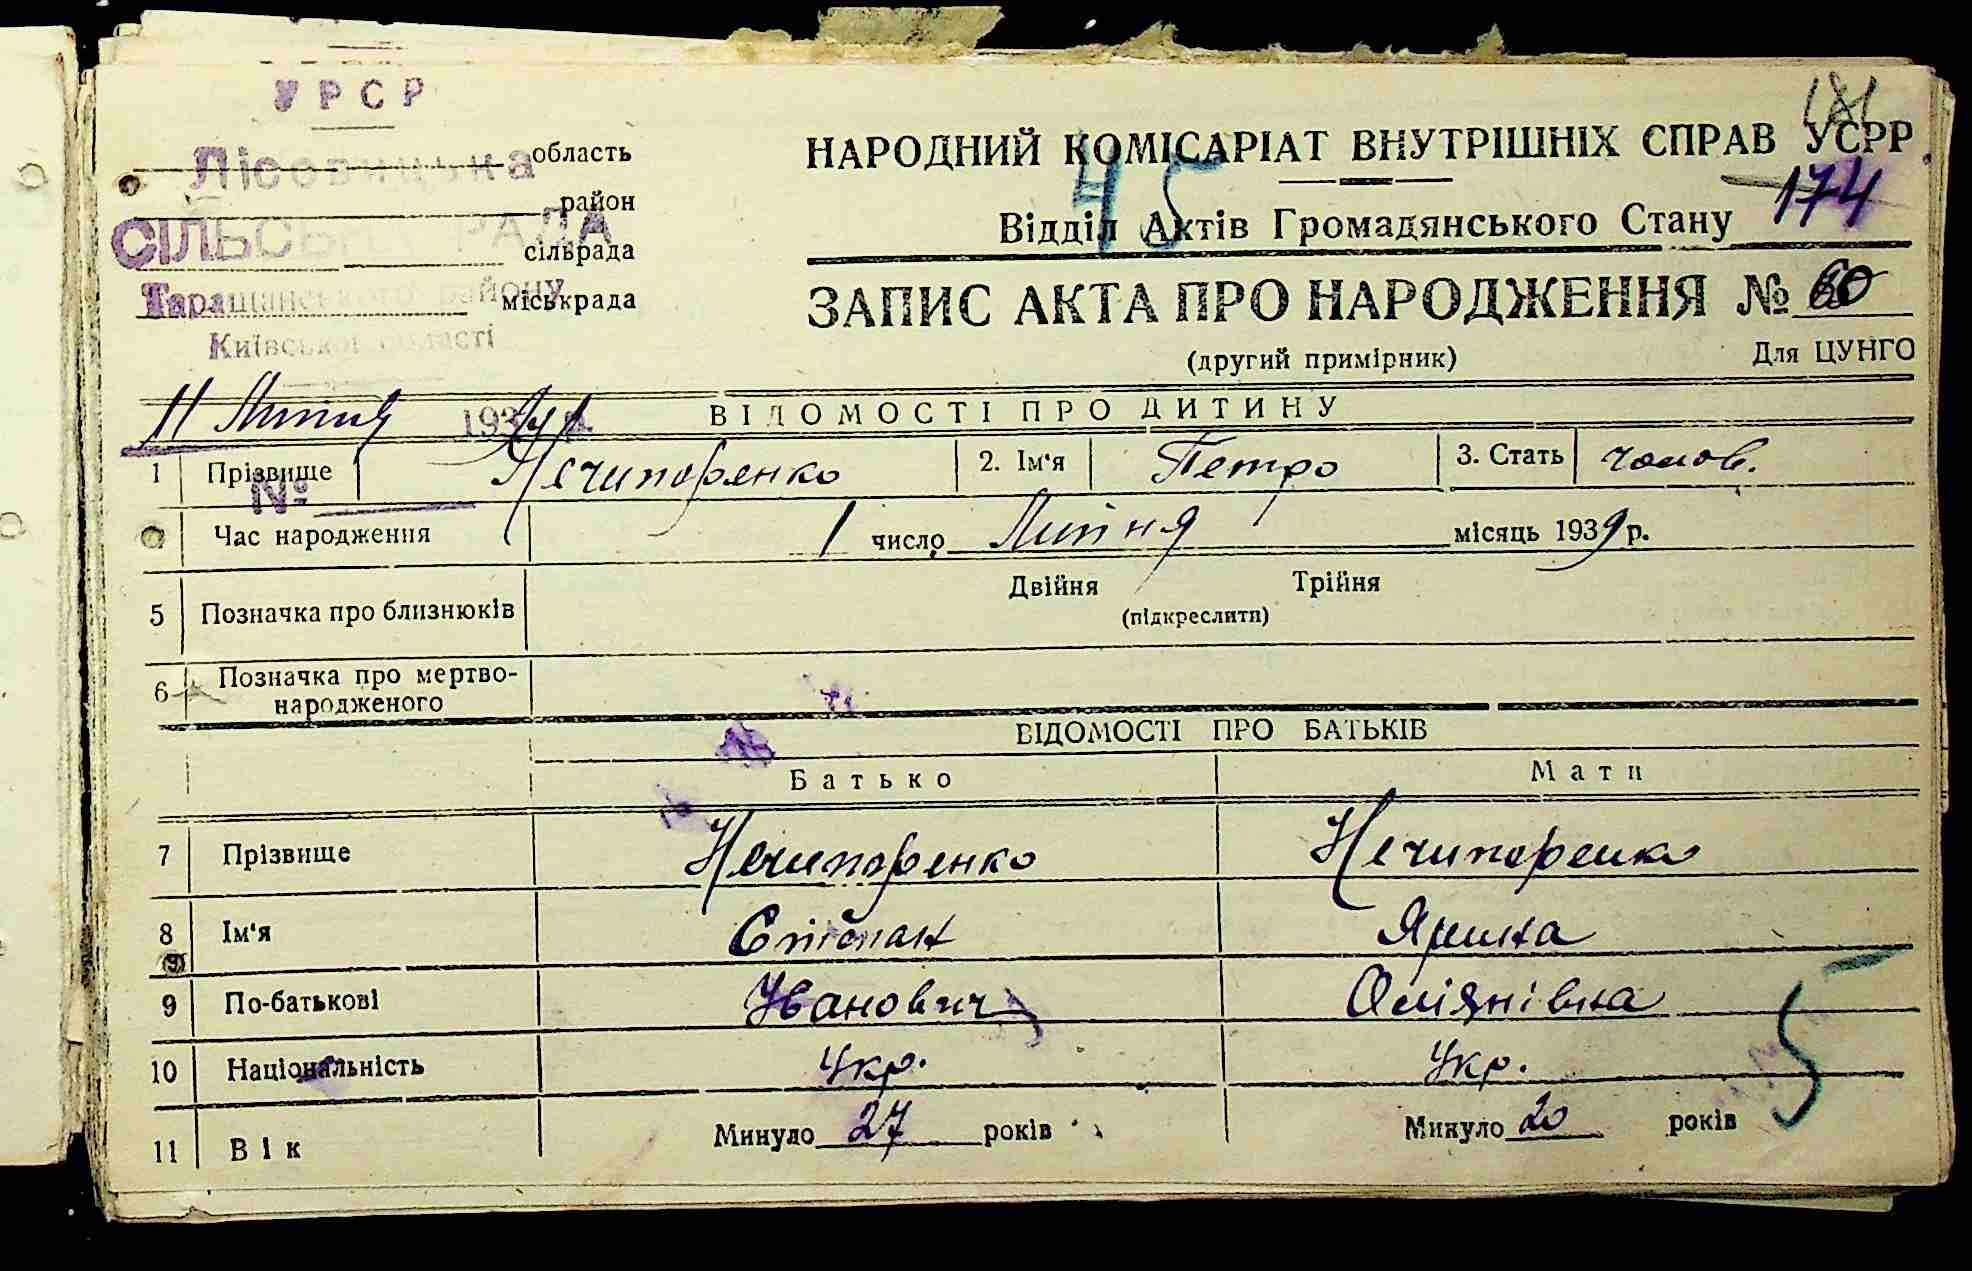 УРСР
Лісовицька область
район
СІЛЬСЬКА РАДА
сільрада
Таращанського району
міськрада
Київської області
181
НАРОДНИЙ КОМІСАРІАТ ВНУТРІШНІХ СПРАВ УСРР
45
174
Відділ Актів Громадянського Стану
ЗАПИС АКТА ПРО НАРОДЖЕННЯ № 60
(другий примірник) Для ЦУНГО
11 Липня 193
ВІДОМОСТІ ПРО ДИТИНУ
1 Прізвище Нечипоренко 2. Ім'я Петро 3. Стать чолов.
№
Час народження 1 число Липня місяць 1939 р.
5 Позначка про близнюків Двійня Трійня
(підкреслити)
6 Позначка про мертво-
народженого
ВІДОМОСТІ ПРО БАТЬКІВ
Батько Мати
7 Прізвище Нечипоренко Нечипоренко
8 Ім'я Степан Ярина
9 По-батькові Іванович Омелянівна
10 Національність Укр. Укр.
5
11 Вік Минуло 27 років Минуло 20 років